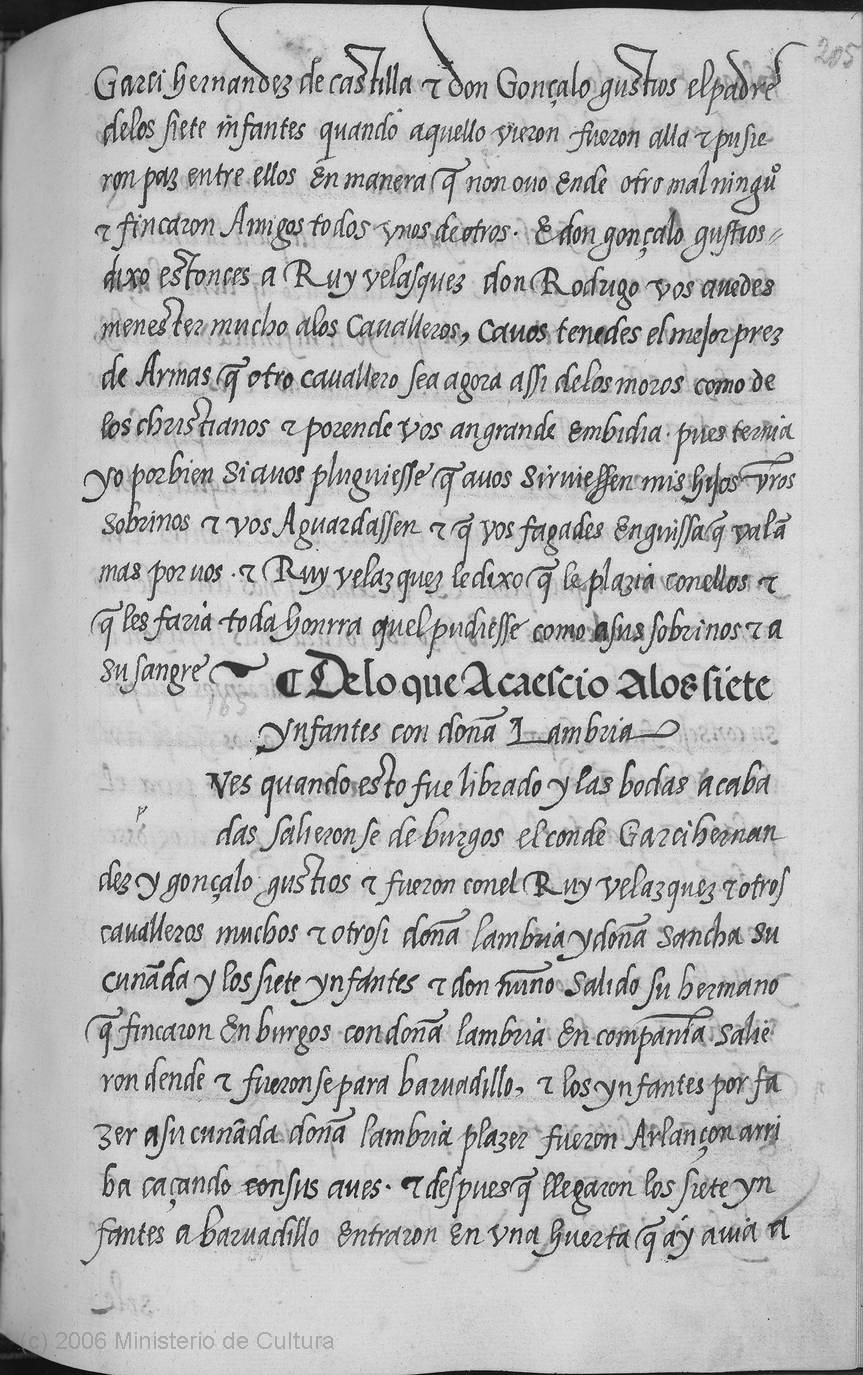 205
Garci hernandez de castilla & don Gonçalo gustios el padre
delos siete infantes quando aquello vieron fueron alla & pusie
ron paz entre ellos En manera q̃ non ouo Ende otro mal ningũo
& fincaron Amigos todos vnos de otros. E don gonçalo gustios
dixo estonces a Ruy velasquez don Rodrigo vos auedes
menester mucho alos Cavalleros, Ca vos tenedes el mejor prez
de Armas q̃ otro cavallero sea agora assi delos moros como de
los christianos & porende vos an grande Embidia. pues ternia
yo por bien Si avos pluguiesse q̃ avos Sirviessen mis hijos vr̃os
Sobrinos & vos Aguardassen & q̃ vos fagades Enguissa q̃ valã
mas por vos. & Ruy velazquez le dixo q̃ le plazia conellos &
q̃ les faria toda honrra quel pudiesse como asus sobrinos & a
Su sangre
¶ De lo que Acaescio Alos siete
ynfantes con doña Lambria
Ves quando esto fue librado y las bodas acaba
p
das Salieron se de burgos el conde Garci hernan
dez y gonçalo gustios & fueron conel Ruy velazquez & otros
cavalleros muchos & otrosi doña lambria y doña Sancha su
Cuñada y los siete ynfantes & don nuño Salido su hermano
q̃ fincaron En burgos con doña lambria En compañia Salie
ron dende & fueron se para barvadillo, & los ynfantes por fa
zer a su cuñada doña lambria plazer fueron Arlançon arri
ba caçando con sus aves. & despues q̃ llegaron los siete yn
fantes a barvadillo Entraron En vna huerta q̃ ay avia a
(c) 2006 Ministerio de Cultura